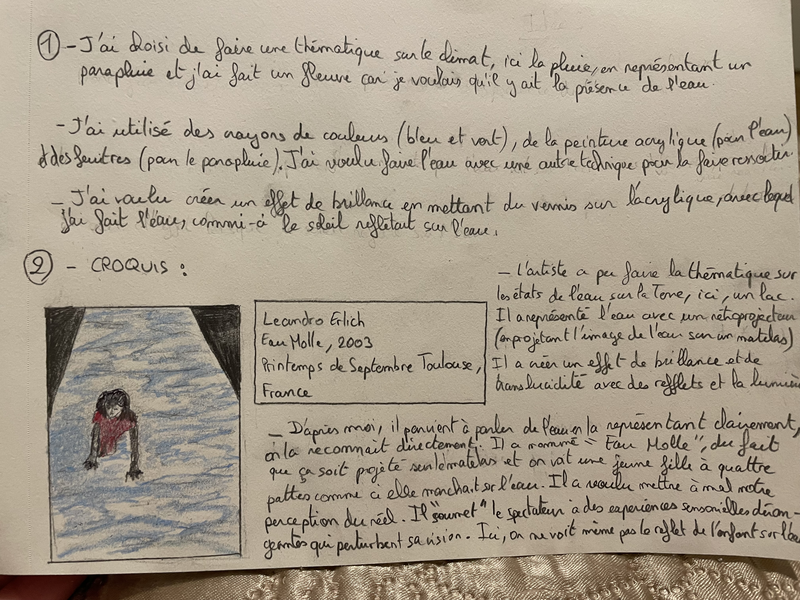 ① - J'ai choisi de faire une thématique sur le climat, ici la pluie, en représentant un
parapluie et j'ai fait un fleuve car je voulais qu'il y ait la présence de l'eau.
- J'ai utilisé des crayons de couleurs (bleu et vert), de la peinture acrylique (pour l'eau)
& des feutres (pour le parapluie). J'ai voulu faire l'eau avec une autre technique pour la faire ressortir.
- J'ai voulu créer un effet de brillance en mettant du vernis sur l'acrylique, avec lequel
j'ai fait l'eau, comme-ci le soleil reflétait sur l'eau.
② - CROQUIS :
Leandro Erlich
Eau Molle, 2003
Printemps de Septembre Toulouse,
France
- L'artiste a pu faire la thématique sur
les états de l'eau sur la Terre, ici, un lac.
Il a représenté l'eau avec un rétroprojecteur
(en projetant l'image de l'eau sur un matelas)
Il a créer un effet de brillance et de
translucidité avec des refflets et la lumière
- D'après moi, il parvient à parler de l'eau en la représentant clairement,
on la reconnait directement. Il a nommé "Eau Molle", du fait
que ça soit projeté sur le matelas et on voit une jeune fille à quattre
pattes comme ci elle marchait sur l'eau. Il a voulu mettre à mal notre
perception du réel. Il "soumet" le spectateur à des expériences sensorielles déran-
geantes qui perturbent sa vision. Ici, on ne voit même pas le reflet de l'enfant sur l'eau